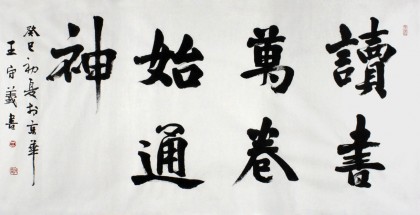 讀書
萬卷
始通
神
癸巳初夏於京華
王守義書